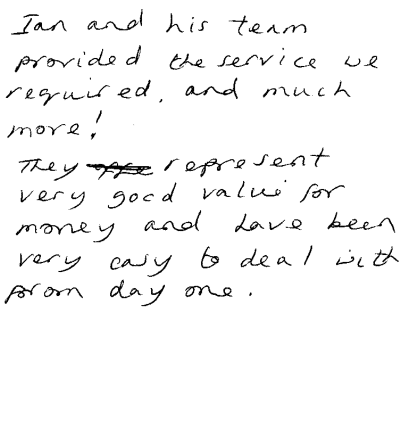 Ian and his team
provided the service we
required, and much
more!
They represent
very good value for
money and have been
very easy to deal with
from day one.